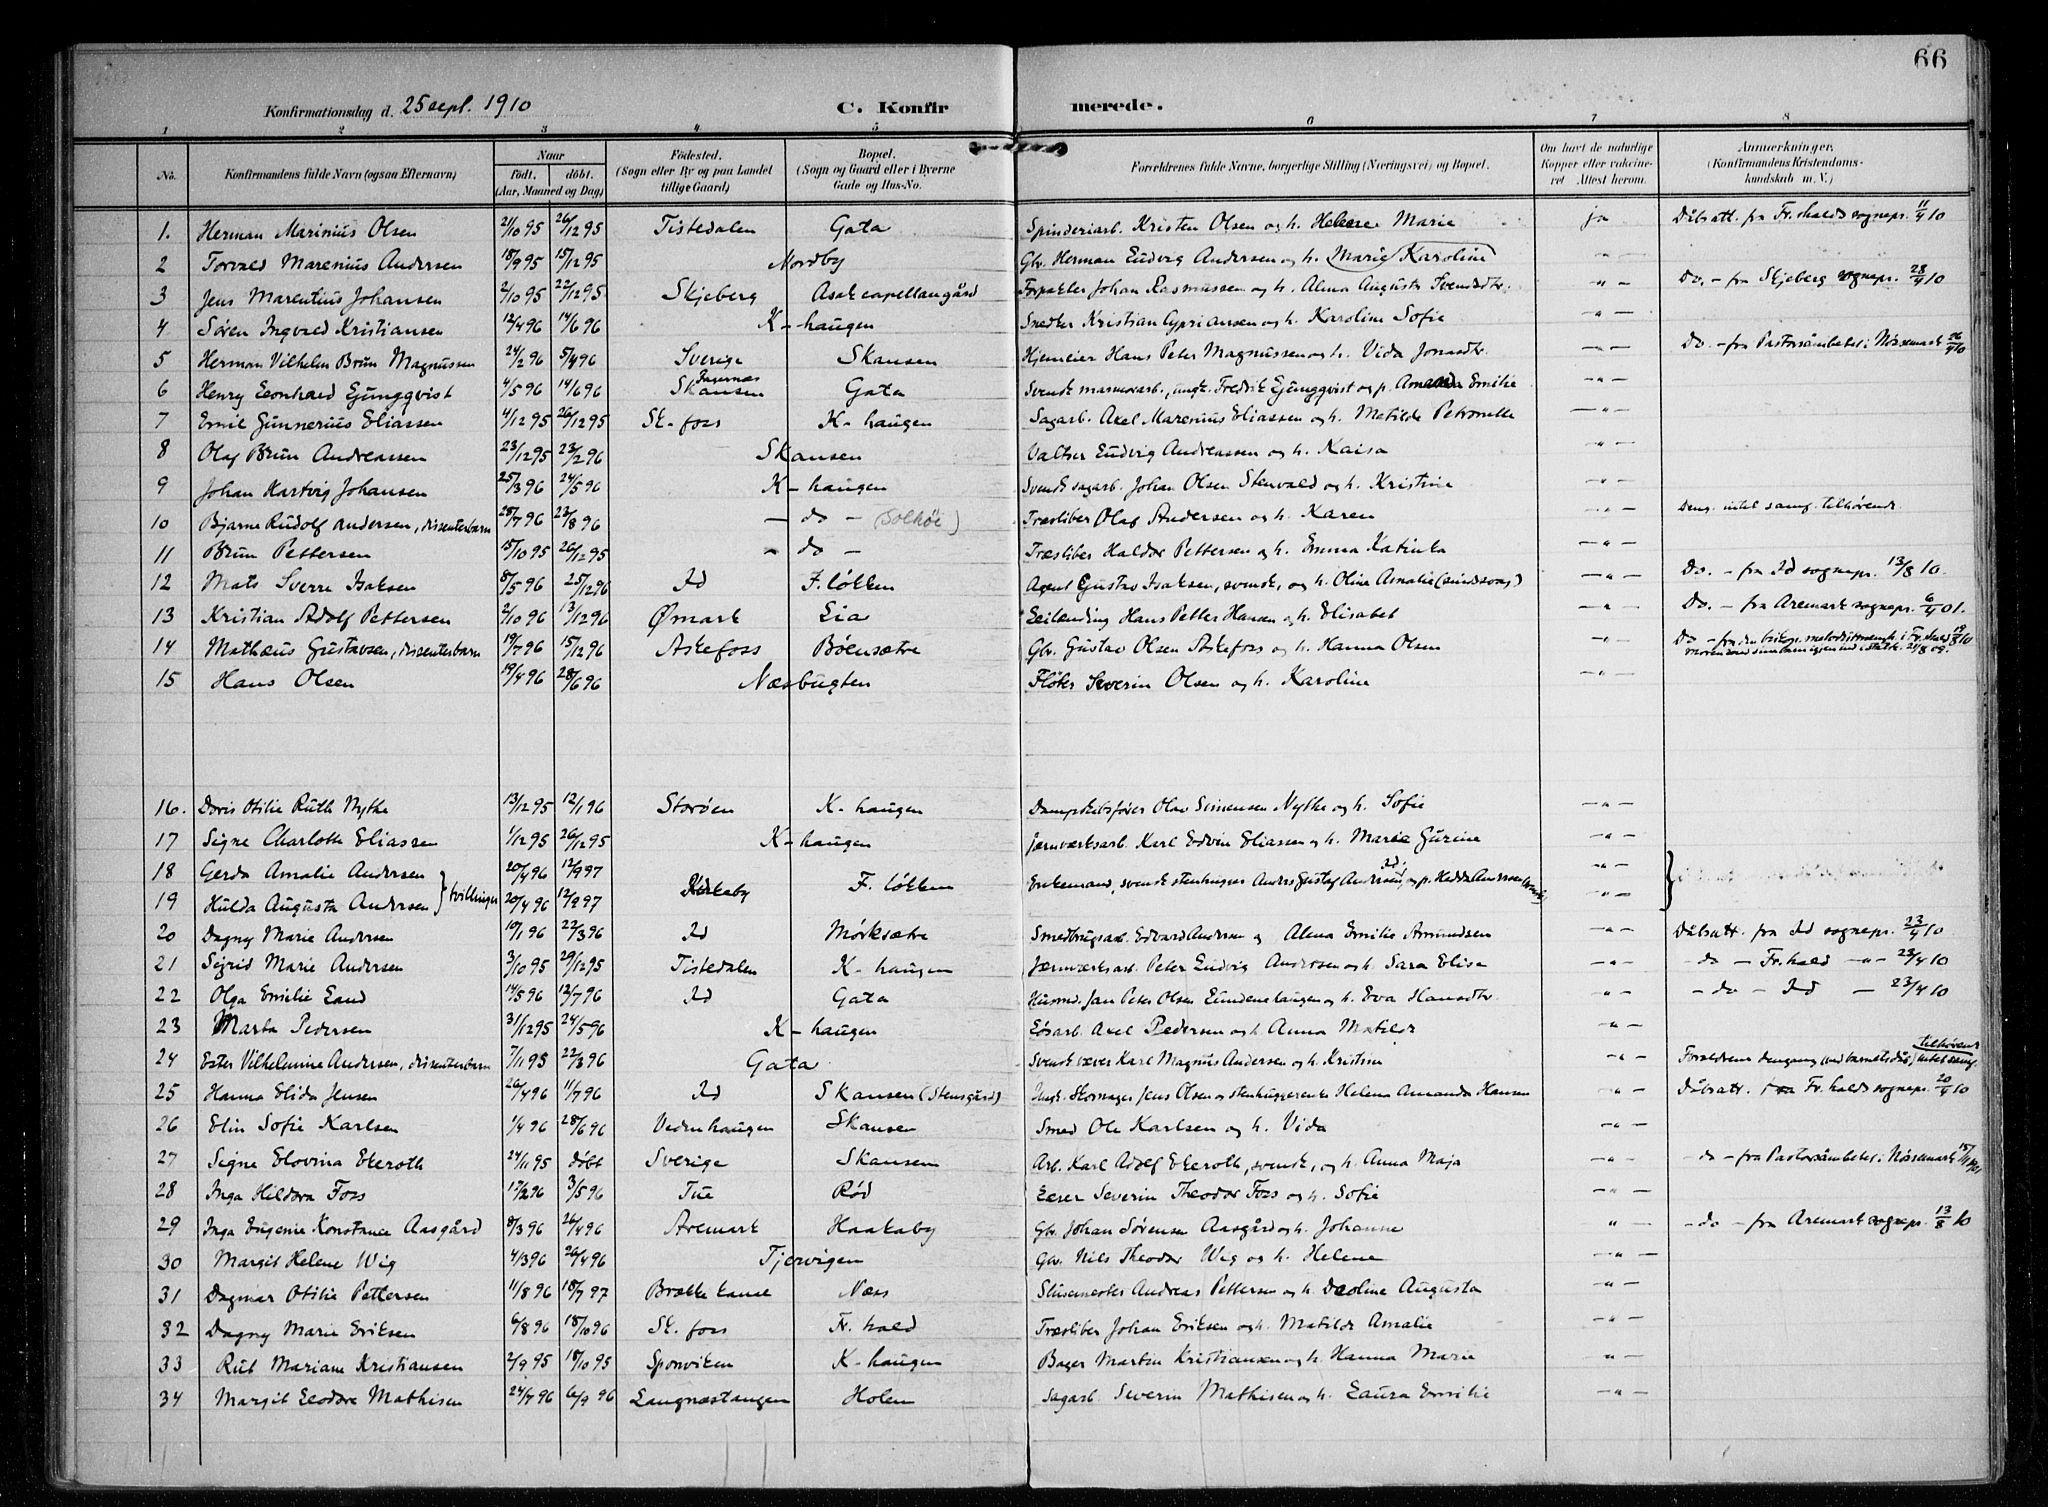 66
Konfirmationsdag d. 25 sept. 1910 C. Konfirmerede.
1 2 3 4 5 6 7 8
No. Konfirmandens fulde Navn (ogsaa Efternavn) Naar født. døbt. (Aar, Maaned og Dag) Fødested. (Sogn eller By og paa Landet tillige Gaard) Bopæl. (Sogn og Gaard eller i Byerne Gade og Hus-No. Forældrenes fulde Navne, borgerlige Stilling (Næringsvei) og Bopæl. Om havt de naturlige Kopper eller vaccineret Attest herom. Anmerkninger. (Konfirmandens Kristendomskundskab m. V.)
1. Herman Marinius Olsen 21/10 95 26/12 95 Tistedalen Gata Spinderiarb. Kristen Olsen og h. Helene Marie ja Dåbsatt. fra Fr.halds sognepr. 11/4 10
2 Torvald Marenius Andersen 18/9 95 15/12 95 Nordby Gbr. Herman Ludvig Andersen og h. Marie Karoline -"-
3 Jens Marentius Johansen 2/10 95 22/12 95 Skjeberg Asak capellangård Forpakter Johan Rasmussen og h. Alma Augusta Svendsdtr. -"- Do. - fra Skjeberg sognepr. 28/4 10
4 Søren Ingvald Kristiansen 12/4 96 14/6 96 K-haugen Snedker Kristian Cypriansen og h. Karoline Sofie -"-
5 Herman Vilhelm Brun Magnussen 24/2 96 5/4 96 Sverige Skansen Hjemeier Hans Peter Magnussen og h. Vida Jonasdtr. -"- Do. - fra Pastorsämbetet i Nössemark 26/4 10
6 Henry Leonhard Ljungqvist 4/5 96 14/6 96 Skansen Gata Svensk marmorarb., ungk. Fredrik Ljungqvist og p. Amanda Emilie -"-
7 Emil Gunnerius Eliassen 4/12 95 26/12 95 St.-foss K-haugen Sagarb. Axel Marenius Eliassen og h. Matilde Petronelle -"-
8 Olaf Brun Andreassen 23/12 95 23/2 96 Skansen Valtser Ludvig Andreassen og h. Kaisa -"-
9 Johan Hartvig Johansen 25/3 96 24/5 96 K-haugen Svensk sagarb. Johan Olsen Stenvald og h. Kristine -"-
10 Bjarne Rudolf Andersen, dissenterbarn 28/7 96 23/8 96 - do - (Solhøi) Træsliber Olaf Andersen og h. Karen -"- Deng. intet samf. tilhørende
11 Brun Pettersen 15/10 95 26/12 95 - do - Træsliber Haldor Pettersen og h. Emma Katinka -"-
12 Mats Sverre Isaksen 8/5 96 25/12 96 Id F. løkken Agent Gustav Isaksen, svensk, og h. Oline Amalie -"- Do. - fra Id sognepr. 13/8 10
13 Kristian Adolf Pettersen 2/10 96 13/12 96 Ømark Lia Leilænding Hans Petter Hansen og h. Elisabet -"- Do. - fra Aremark sognepr. 6/4 01.
14 Mathæus Gustavsen, dissenterbarn 19/7 96 15/12 96 Askefoss Bøensætre Gbr. Gustav Olsen Askefoss og h. Hanna Olsen -"- Do - fra den metodistmenh. i Fr.hald 19/8 10
21/8 09.
15 Hans Olsen 19/4 96 28/6 96 Næsbugten Fløter Severin Olsen og h. Karoline -"-
16. Doris Otilie Ruth Nythe 13/12 95 12/1 96 Storøen K-haugen Dampskibsfører Olav Simensen Nythe og h. Sofie -"-
17 Signe Charlotte Eliassen 1/12 95 26/12 95 K-haugen Jernværksarb. Karl Edvin Eliassen og h. Marie Gurine -"-
18 Gerda Amalie Andersen 20/4 96 12/9 97 -"-
19 Hulda Augusta Andersen } tvillinger 20/4 96 12/9 97 F. løkken Enkemand, svensk stenhugger Anders Gustaf Andersson, og p. Hedda Andersen -"-
20 Dagny Marie Andersen 19/1 96 22/3 96 Id Mørksætre Smedbrugsarb. Edvard Andersen og Alma Emilie Amundsen -"- Dåbsatt. fra Id sognepr. 23/4 10
21 Sigrid Marie Andersen 3/10 95 29/12 95 Tistedalen K-haugen Jernværksarb. Peter Ludvig Andersen og h. Sara Elise -"- - do - Fr.hald -"- 23/4 10
22 Olga Emilie Lund 14/5 96 12/7 96 Id Gata Husmd. Jan Peter Olsen Lundenehaugen og h. Eva Hansdtr. -"- - do - Id - 23/4 10
23 Marta Pedersen 31/12 95 24/5 96 K-haugen Løsarb. Axel Pedersen og h. Anna Matilde -"-
24 Ester Vilhelmine Andersen, dissenterbarn 7/11 95 22/3 96 Gata Svensk væver Karl Magnus Andersen og h. Kristine -"- Forældrene dengang (ved barnets dåb) intet samf. tilhørende
25 Hanna Elida Jensen 26/4 96 11/7 96 Id Skansen (Stensgård) Ungk. Skomager Jens Olsen og stenhuggerenke Helena Amanda Hansen " - Dåbsatt. fra Fr.halds sognepr. 20/4 10
26 Elin Sofie Karlsen 1/4 96 28/6 96 Vedenhaugen Skansen Smed Ole Karlsen og h. Vida -"-
27 Signe Elovina Ekeroth 24/11 95 døbt Sverige Skansen Arb. Karl Adolf Ekeroth, svensk, og h. Anna Maja -"- - do - fra Pastorsämbetet i Nössemark
28 Inga Hildora Foss 17/2 96 3/5 96 Tue Rød Lærer Severin Theodor Foss og h. Sofie " -
29 Inga Eugenie Konstance Aasgård 8/3 96 26/4 96 Aremark Haakaby Gbr. Johan Sørensen Aasgård og h. Johanne " - - do - fra Aremark sognepr. 13/8 10
30 Margit Helene Wig 4/3 96 26/4 96 Tjervigen Gbr. Nils Theodor Wig og h. Helene -"-
31 Dagmar Otilie Pettersen 11/8 96 18/7 97 Brække Næss Slusemester Andreas Pettersen og h. Deoline Augusta -"-
32 Dagny Marie Eriksen 6/8 96 18/10 96 St.foss Fr.hald Træsliber Johan Eriksen og h. Matilde Amalie -"-
33 Rut Mariane Kristiansen 2/9 95 18/10 95 Sponviken K-haugen Bager Martin Kristiansen og h. Hanna Marie " -
34 Margit Leodore Mathisen 24/7 96 6/9 96 Langnæstangen Holen Sagarb. Severin Mathisen og h. Laura Emilie -"-